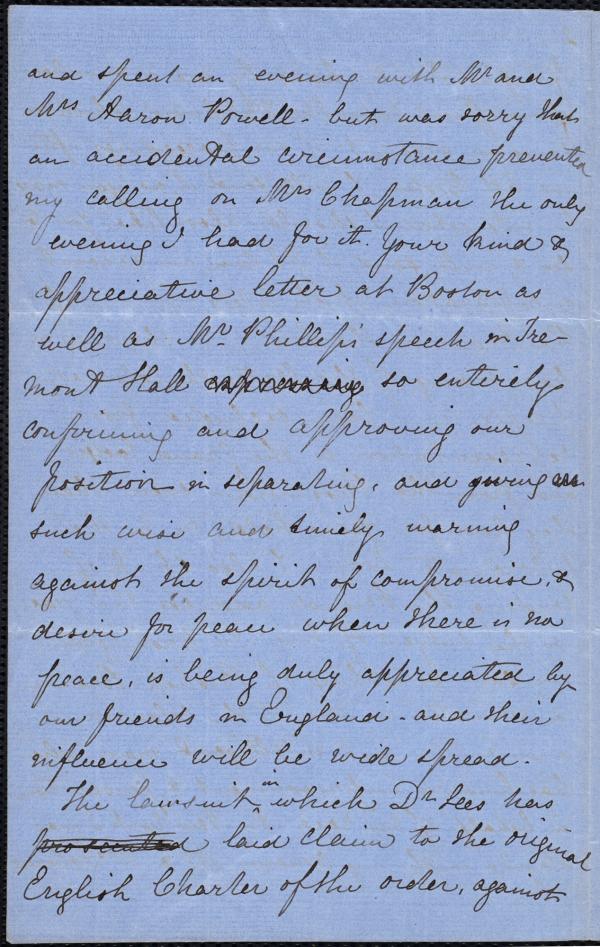 and spent an evening with Mr and
Mrs Aaron Powell - but was sorry that
an accidental circumstance prevented
my calling on Mrs Chapman the only
evening I had for it. Your kind &
appreciative letter at Boston as
well as Mr. Phillips speech in Tre-
mont Hall expressing so entirely
confirming and approving our
position in separating, and giving us
such wise and timely warning
against the spirit of compromise, &
desire for peace when there is no
peace, is being duly appreciated by
our friends in England - and their
influence will be wide spread.
The lawsuit in which Dr Lees has
prosecuted laid claim to the original
English Charter of the order, against